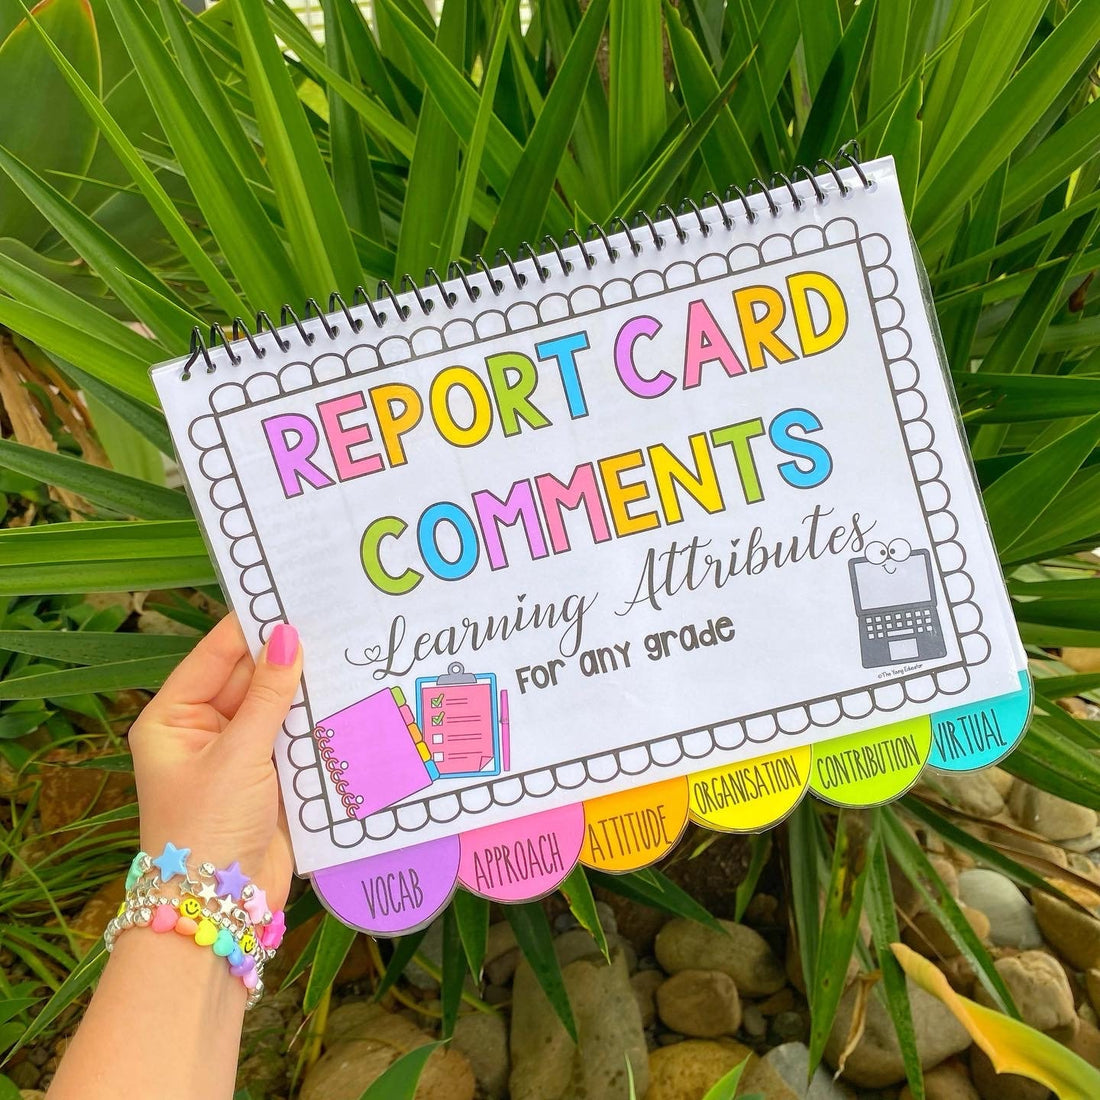 REPORT CARD
COMMENTS
Learning Attributes
FOR ANY GRADE
©The Yong Educator
VOCAB
APPROACH
ATTITUDE
ORGANISATION
CONTRIBUTION
VIRTUAL